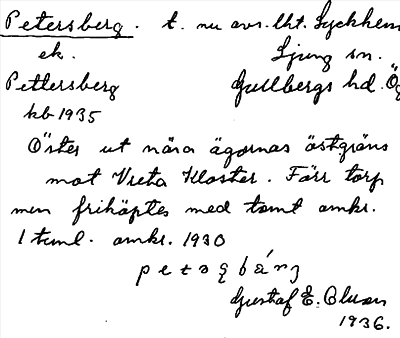 Petersberg. t. nu avs. lht. Lyckhem
ek. Ljung sn.
Pettersberg Gullbergs hd. Ög
kb 1935
Öster ut nära ägornas östgräns
mot Vreta Kloster. Förr torp
men friköptes med tomt omkr.
1 tunl. omkr. 1930
Gustaf E. Olsson
1936.